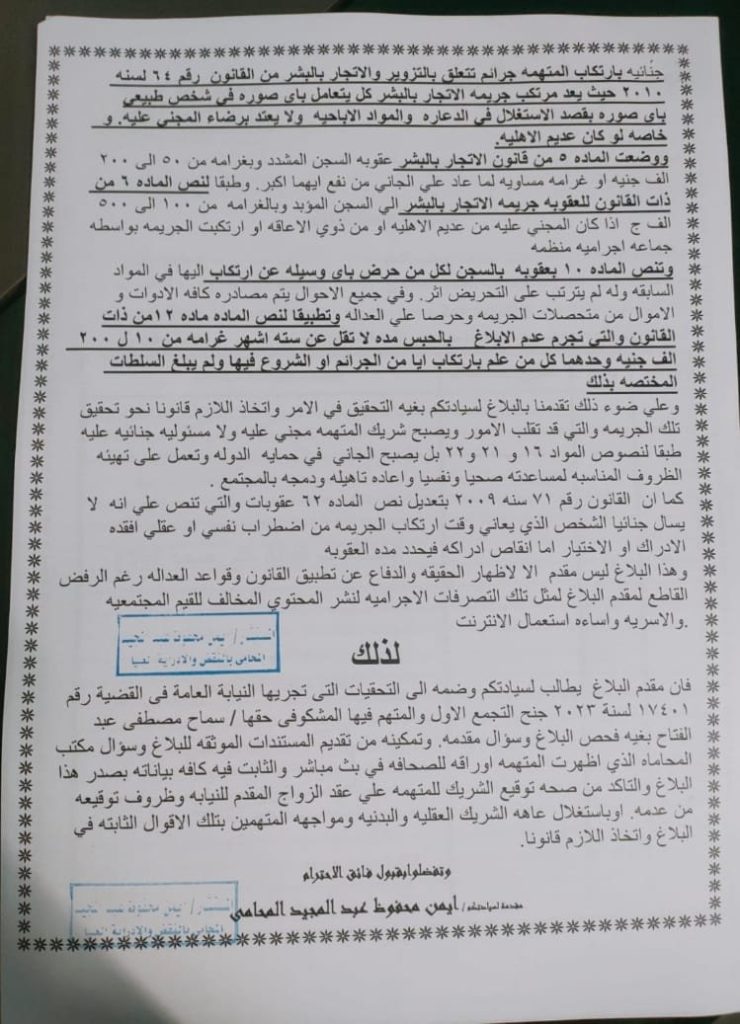 جنائيه بارتكاب المتهمه جرائم تتعلق بالتزوير والاتجار بالبشر من القانون رقم ٦٤ لسنه
٢٠١٠ حيث يعد مرتكب جريمه الاتجار بالبشر كل يتعامل باى صوره في شخص طبيعي
باى صوره بقصد الاستغلال في الدعاره والمواد الاباحيه ولا يعتد برضاء المجني عليه. و
خاصه لو كان عديم الاهليه.
ووضعت الماده ٥ من قانون الاتجار بالبشر عقوبه السجن المشدد وبغرامه من ٥٠ الى ٢٠٠
الف جنيه او غرامه مساويه لما عاد علي الجاني من نفع ايهما اكبر. وطبقا لنص الماده ٦ من
ذات القانون للعقوبه جريمه الاتجار بالبشر الي السجن المؤبد وبالغرامه من ١٠٠ الى ٥٠٠
الف ج اذا كان المجني عليه من عديم الاهليه او من ذوي الاعاقه او ارتكبت الجريمه بواسطه
جماعه اجراميه منظمه
وتنص الماده ١٠ بعقوبه بالسجن لكل من حرض باى وسيله عن ارتكاب اليها في المواد
السابقه وله لم يترتب على التحريض اثر. وفي جميع الاحوال يتم مصادره كافه الادوات و
الاموال من متحصلات الجريمه وحرصا علي العداله وتطبيقا لنص الماده ماده ١٢من ذات
القانون والتي تجرم عدم الابلاغ بالحبس مده لا تقل عن سته اشهر غرامه من ١٠ ل ٢٠٠
الف جنيه وحدهما كل من علم بارتكاب ايا من الجرائم او الشروع فيها ولم يبلغ السلطات
المختصه بذلك
وعلي ضوء ذلك تقدمنا بالبلاغ لسيادتكم بغيه التحقيق في الامر واتخاذ اللازم قانونا نحو تحقيق
تلك الجريمه والتي قد تقلب الامور ويصبح شريك المتهمه مجني عليه ولا مسئوليه جنائيه عليه
طبقا لنصوص المواد ١٦ و ٢١ و٢٢ بل يصبح الجاني في حمايه الدوله وتعمل على تهيئه
الظروف المناسبه لمساعدته صحيا ونفسيا واعاده تاهيله ودمجه بالمجتمع .
كما ان القانون رقم ٧١ سنه ٢٠٠٩ بتعديل نص الماده ٦٢ عقوبات والتي تنص علي انه لا
يسال جنائيا الشخص الذي يعاني وقت ارتكاب الجريمه من اضطراب نفسي او عقلي افقده
الادراك او الاختيار اما انقاص ادراكه فيحدد مده العقوبه
وهذا البلاغ ليس مقدم الا لاظهار الحقيقه والدفاع عن تطبيق القانون وقواعد العداله رغم الرفض
القاطع لمقدم البلاغ لمثل تلك التصرفات الاجراميه لنشر المحتوي المخالف للقيم المجتمعيه
.والاسريه واساءه استعمال الانترنت
المستشار / ايمن محفوظ عبد المجيد
المحامى بالنقض والادارية العليا
لذلك
فان مقدم البلاغ يطالب لسيادتكم وضمه الى التحقيات التى تجريها النيابة العامة فى القضية رقم
١٧٤٠١ لسنة ٢٠٢٣ جنح التجمع الاول والمتهم فيها المشكوفى حقها / سماح مصطفى عبد
الفتاح بغيه فحص البلاغ وسؤال مقدمه. وتمكينه من تقديم المستندات الموثقه للبلاغ وسؤال مكتب
المحاماه الذي اظهرت المتهمه اوراقه للصحافه في بث مباشر والثابت فيه كافه بياناته بصدر هذا
البلاغ والتاكد من صحه توقيع الشريك للمتهمه علي عقد الزواج المقدم للنيابه وظروف توقيعه
من عدمه. اوباستغلال عاهه الشريك العقليه والبدنيه ومواجهه المتهمين بتلك الاقوال الثابته في
البلاغ واتخاذ اللازم قانونا.
وتفضلوا بقبول فائق الاحترام
مقدمة لسيادتكم / ايمن محفوظ عبد المجيد المحامى
المستشار / ايمن محفوظ عبد المجيد
المحامى بالنقض والادارية العليا